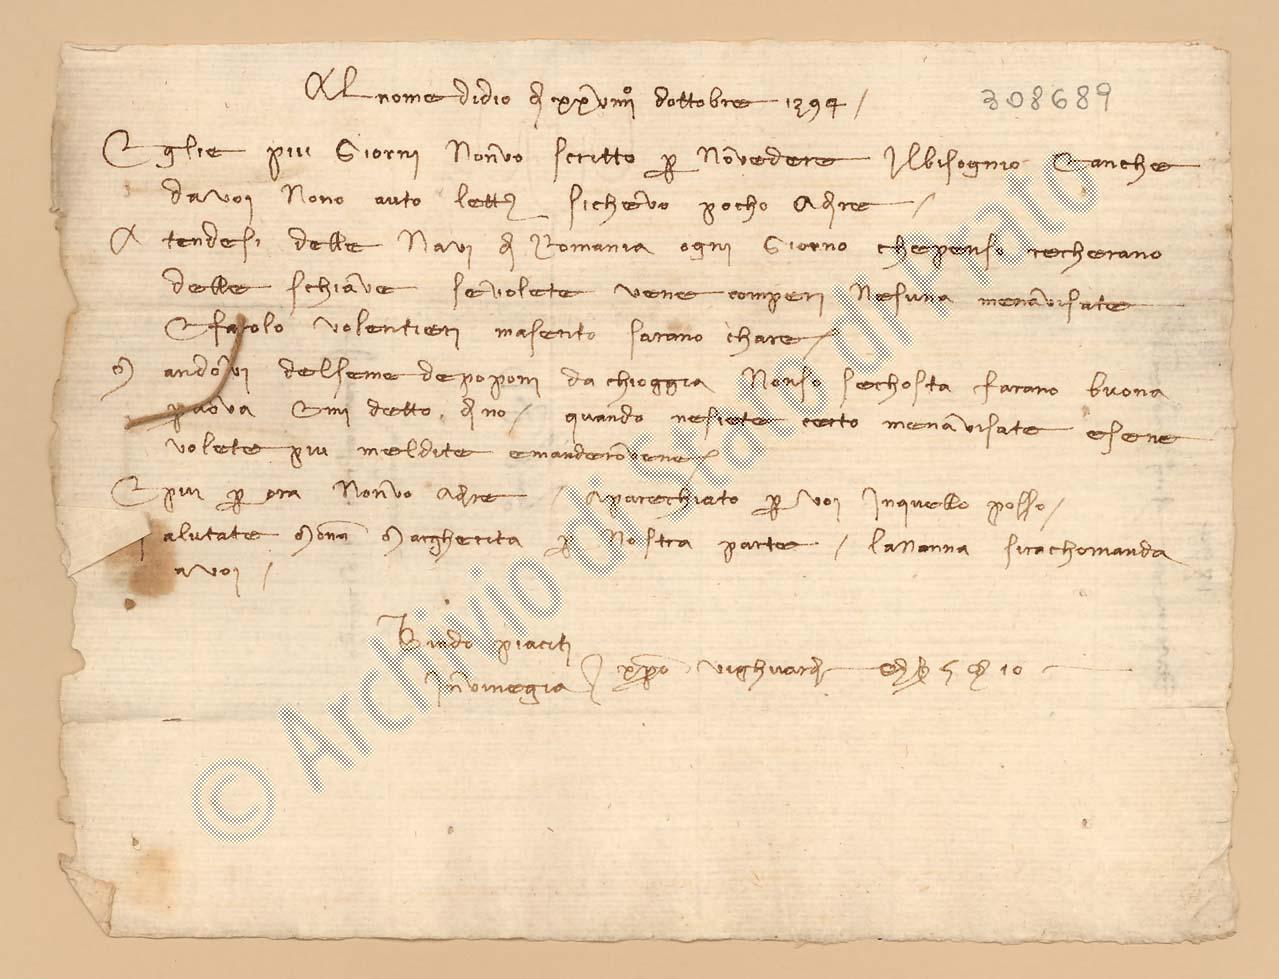 Al nome di dio dì xxviiiiº dottobre 1394 /
308689
Eglie piu Giorni Nonvo scritto p Novedere Ilbisognio Eanche
davoi Nono auto lettᵃ sichevo pocho Adire /
A tendesi delle Navi di Romania ogni Giorno chepenso recherano
delle schiave sevolete vene comperi Nesuna menavisate
E farolo volentieri masento sarano chare /
M andovi delseme depoponi da chioggia Nonso sechosta farano buona
pruova Emi detto dino / quando nesiete certo menavisate esene
volete piu meldite emanderovene /
E piu p ora Nonvo dire / Aparechiato p voi Inquello posso /
S alutate Mona Margherita p Nostra parte / laNanna sirachomanda
a voi /
Bindo piaciti
Invinegia / xpo vighuardi
© Archivio di Stato di Prato